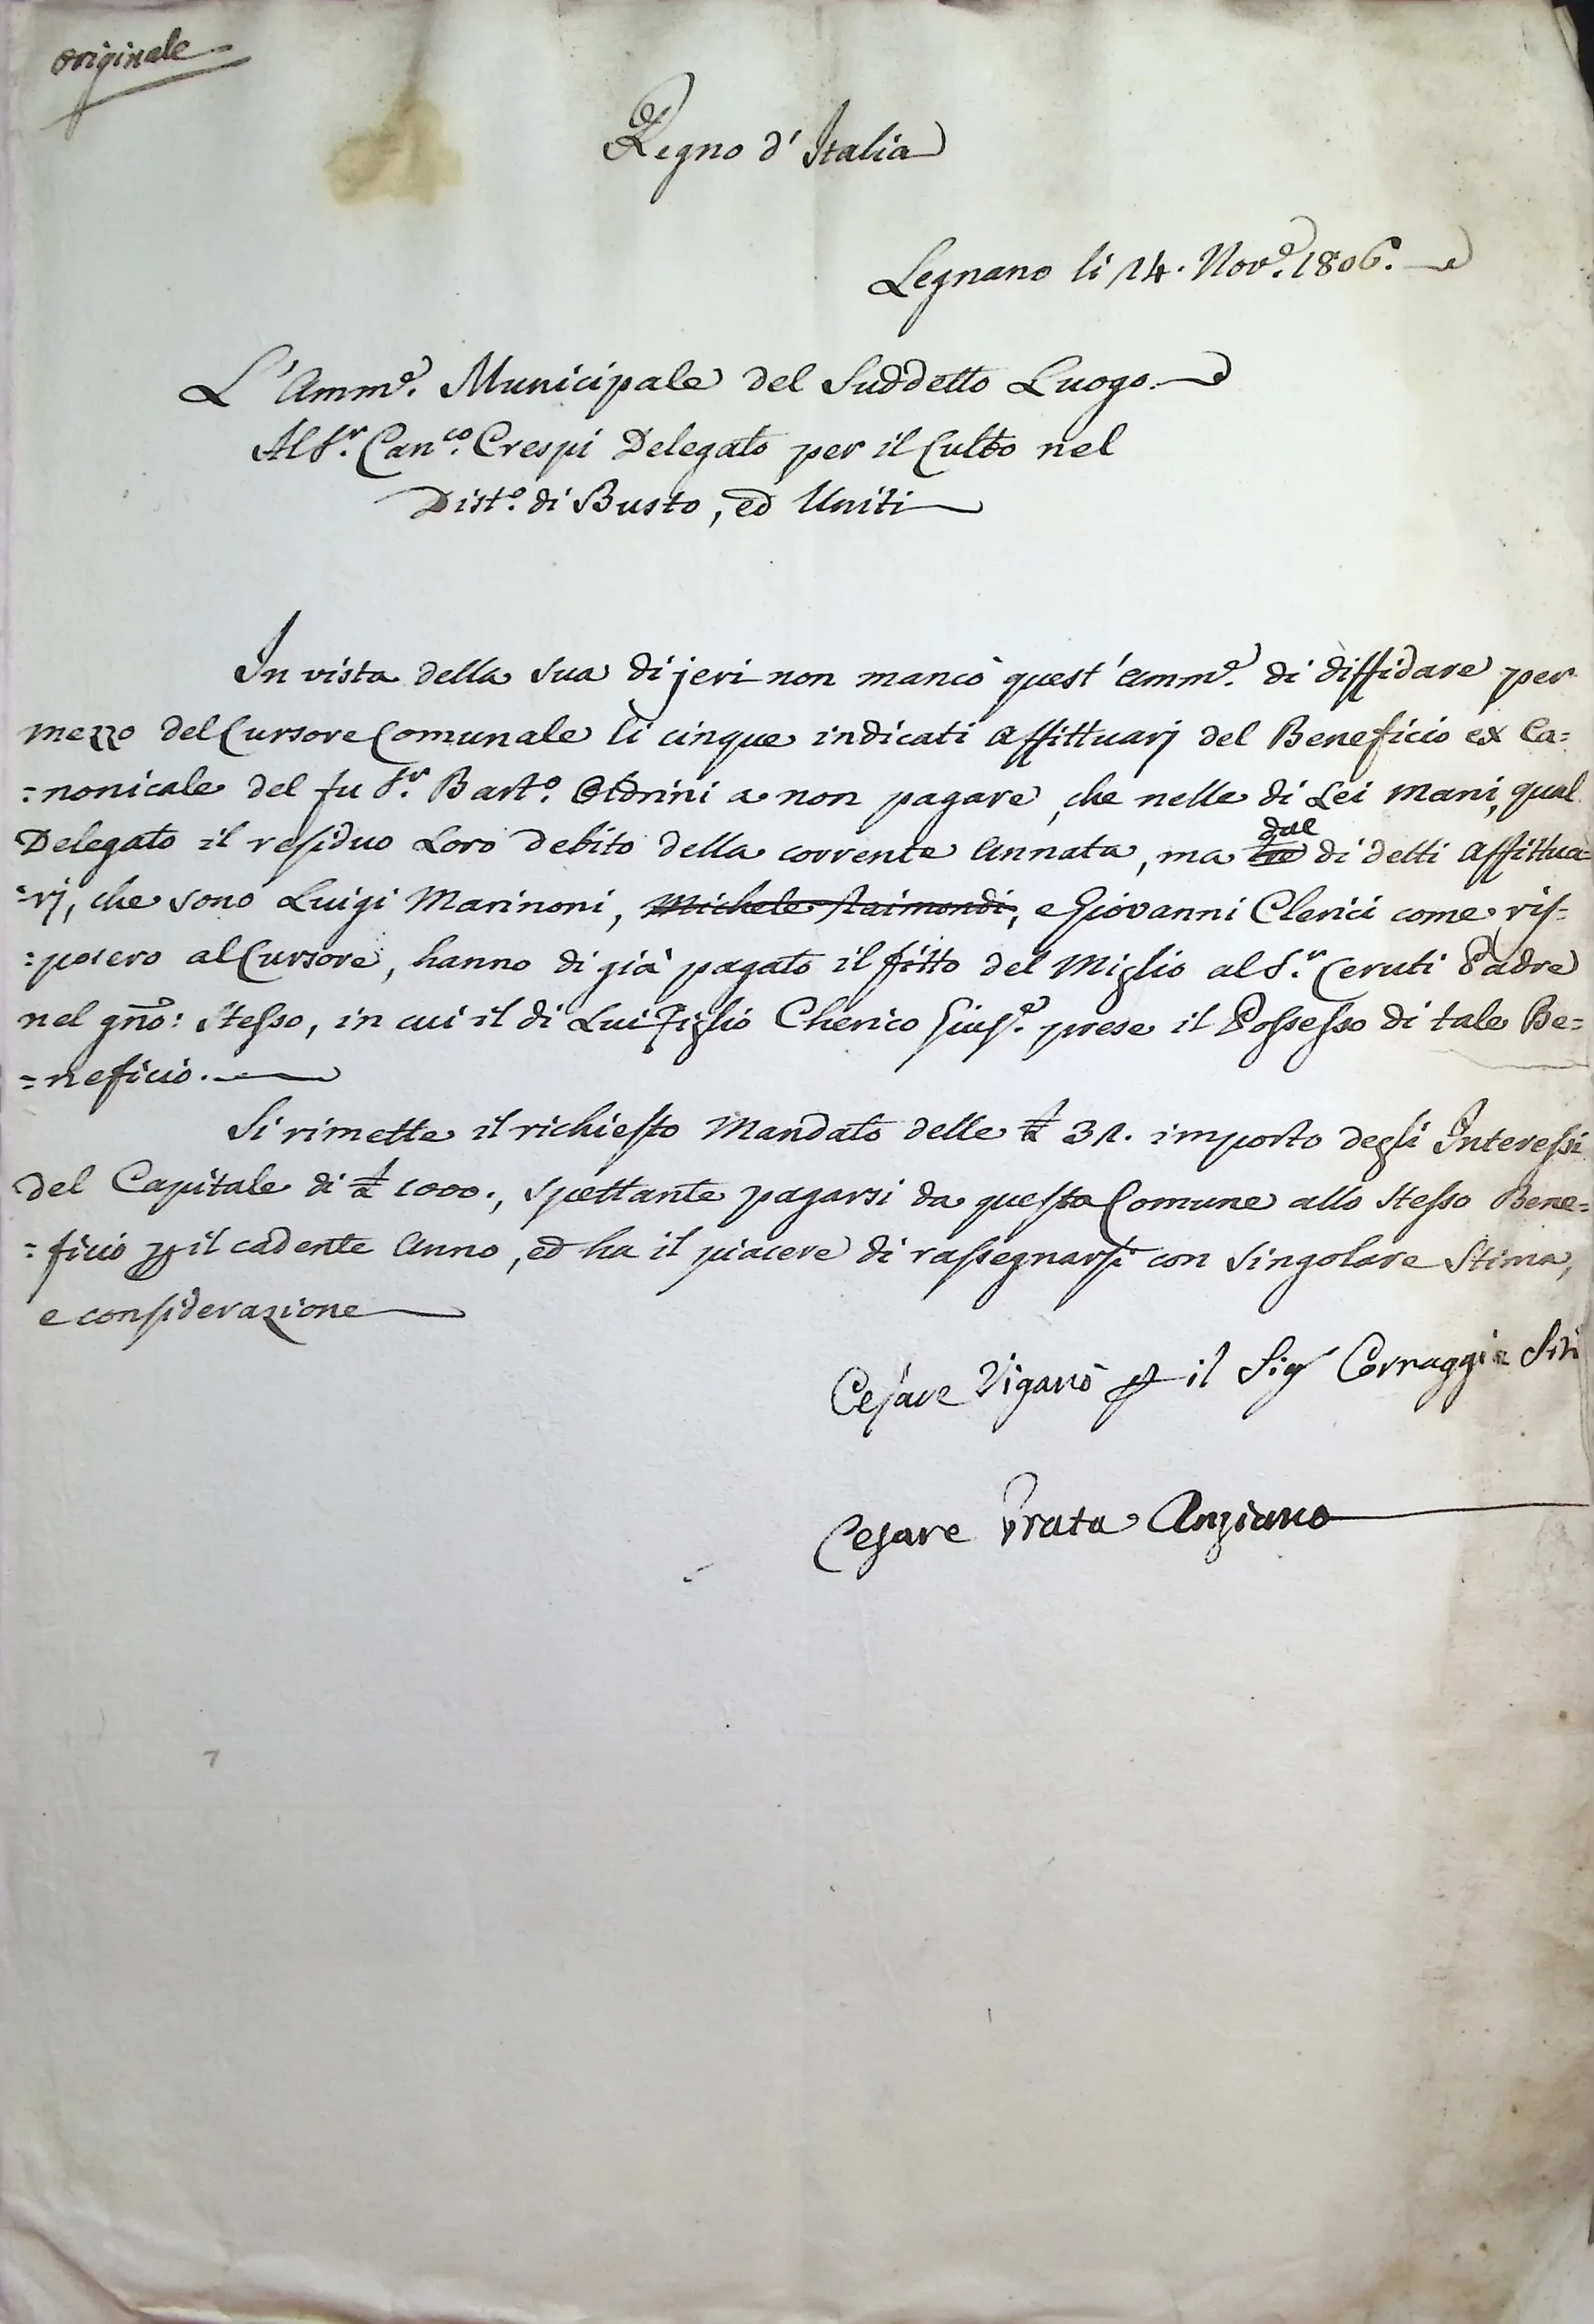 originale
Regno d'Italia
Legnano li 14. Nov.e 1806.
L'Amm.e Municipale del Suddetto Luogo.
Al S.r Can.co Crespi Delegato per il Culto nel
Dist.o di Busto, ed Uniti
In vista della sua di jeri non mancò quest'Amm.e di diffidare per
mezzo del Cursore Comunale li cinque indicati Affittuarj del Beneficio ex Ca=
=nonicale del fu S.r Bart.o Oldrini a non pagare, che nelle di Lei mani, qual
Delegato il residuo Loro debito della corrente Annata, ma due di detti Affittua=
=rj, che sono Luigi Marinoni, Michele Raimondi, e Giovanni Clerici come ris=
=posero al Cursore, hanno di già pagato il fitto del Miglio al S.r Ceruti Padre
nel gño: stesso, in cui il di Lui Figlio Cherico Gius.e prese il Possesso di tale Be=
=neficio.
Si rimette il richiesto Mandato delle £ 31. importo degli Interessi
del Capitale di £ 1000., spettante pagarsi da questa Comune allo stesso Bene=
=ficio p il cadente Anno, ed ha il piacere di rassegnarsi con singolare stima,
e considerazione
Cesare Viganò p il Sig.r Corraggia
Cesare Prata Anziano